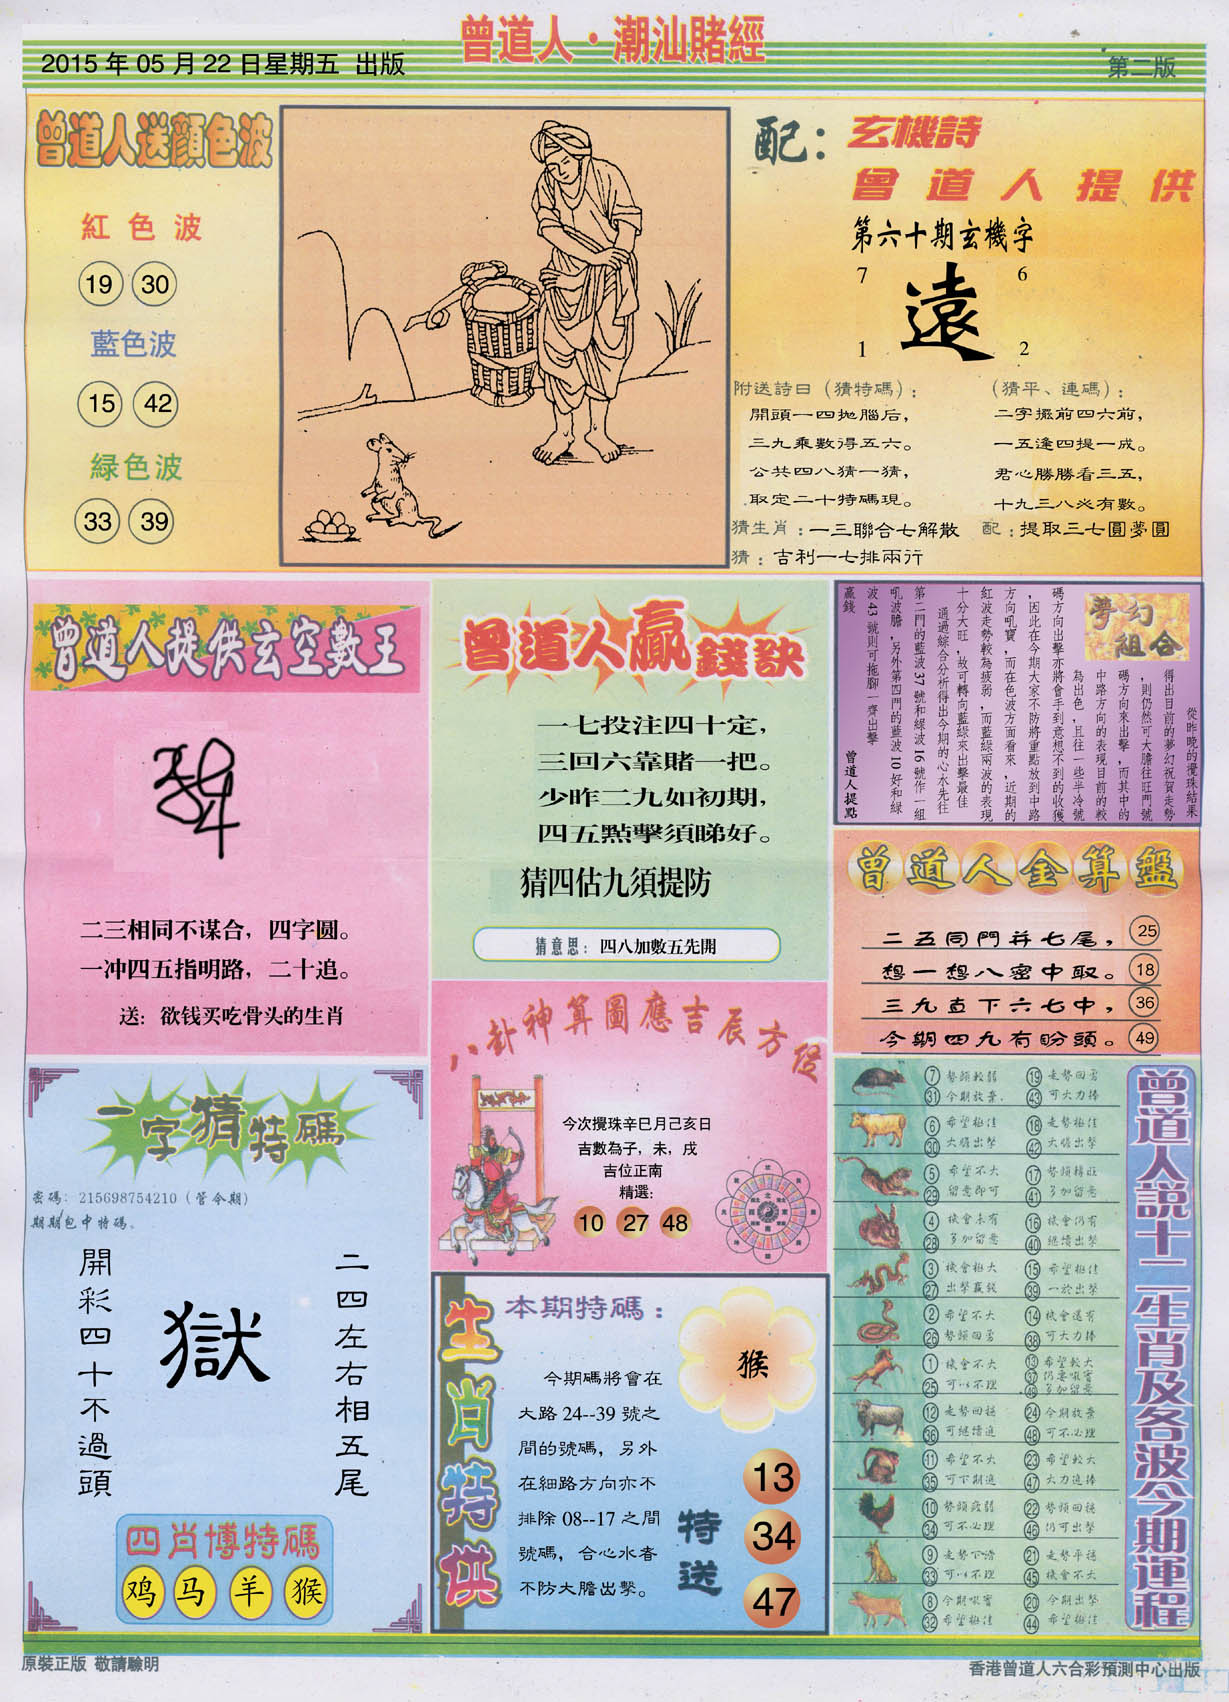 曾道人·潮汕賭經
2015 年 05 月 22 日星期五 出版
第二版
曾道人送顏色波
紅色波
19 30
藍色波
15 42
緑色波
33 39
配：
玄機詩
曾道人提供
第六十期玄機字
7 6
遠
1 2
附送詩曰（猜特碼）：
開頭一四拋腦后，
三九乘數得五六。
公共四八猜一猜，
取定二十特碼現。
（猜平、連碼）：
二字擺前四六前，
一五逢四提一成。
君心勝勝看三五，
十九三八必有數。
猜生肖：一三聯合七解散
配：提取三七圓夢圓
猜：吉利一七排兩行
曾道人提供玄空數王
二三相同不谋合，四字圆。
一冲四五指明路，二十追。
送：欲钱买吃骨头的生肖
曾道人贏錢訣
一七投注四十定，
三回六靠賭一把。
少昨二九如初期，
四五點擊須睇好。
猜四估九須提防
猜意思：四八加數五先開
夢幻組合
從昨晚的攪珠結果
得出目前的夢幻祝賀走勢
，則仍然可大膽往旺門號
碼方向來出擊，而其中的
中路方向的表現目前的較
為出色，且往一些半冷號
碼方向出擊亦將會手到意想不到的收獲
，因此在今期大家不防將重點放到中路
方向吼寶，而在色波方面看來，近期的
紅波走勢較為疲弱，而藍綠兩波的表現
十分大旺，故可轉向藍綠來出擊最佳
通過綜合分析得出今期的心水先往
第二門的藍波 37 號和綠波 16 號作一組
吼波膽，另外第四門的藍波 10 好和綠
波 43 號則可拖腳一齊出擊
贏錢
曾道人提點
曾道人金算盤
二五同門并七尾，25
想一想八密中取。18
三九直下六七中，36
今期四九有盼頭。49
八卦神算圖應吉辰方位
今次攪珠辛巳月己亥日
吉數為子，未，戌
吉位正南
精選：
10 27 48
一字猜特碼
密碼：215698754210（管今期）
期期包中特碼。
開彩四十不過頭
獄
二四左右相五尾
四肖博特碼
鸡 马 羊 猴
生肖特供
本期特碼：
猴
今期碼將會在
大路 24--39 號之
間的號碼，另外
在細路方向亦不
排除 08--17 之間
號碼，合心水者
不防大膽出擊。
特送
13
34
47
曾道人説十二生肖及各波今期運程
7 勢頭較弱 19 走勢回勇
31 今期放棄 43 可大力捧
6 希望極佳 18 走勢極佳
30 大膽出擊 42 大膽出擊
5 希望不大 17 勢頭轉旺
29 留意即可 41 多加留意
4 機會未有 16 機會仍有
28 多加留意 40 繼續出擊
3 機會極大 15 希望極佳
27 出擊贏錢 39 一於出擊
2 希望不大 14 機會還有
26 勢頭回勇 38 可大力捧
1 機會不大 13 希望較大
25 可以不理 37 仍要吼實
49 多加留意
12 走勢回穩 24 今期放棄
36 可繼續追 48 可不必理
11 希望不大 23 希望較大
35 可下期追 47 大力追捧
10 勢頭疲弱 22 勢頭回穩
34 可不必理 46 仍可出擊
9 走勢下滑 21 走勢平穩
33 可以不理 45 機會不大
8 今期吼實 20 今期出擊
32 希望極佳 44 希望極佳
原裝正版 敬請驗明
香港曾道人六合彩預測中心出版